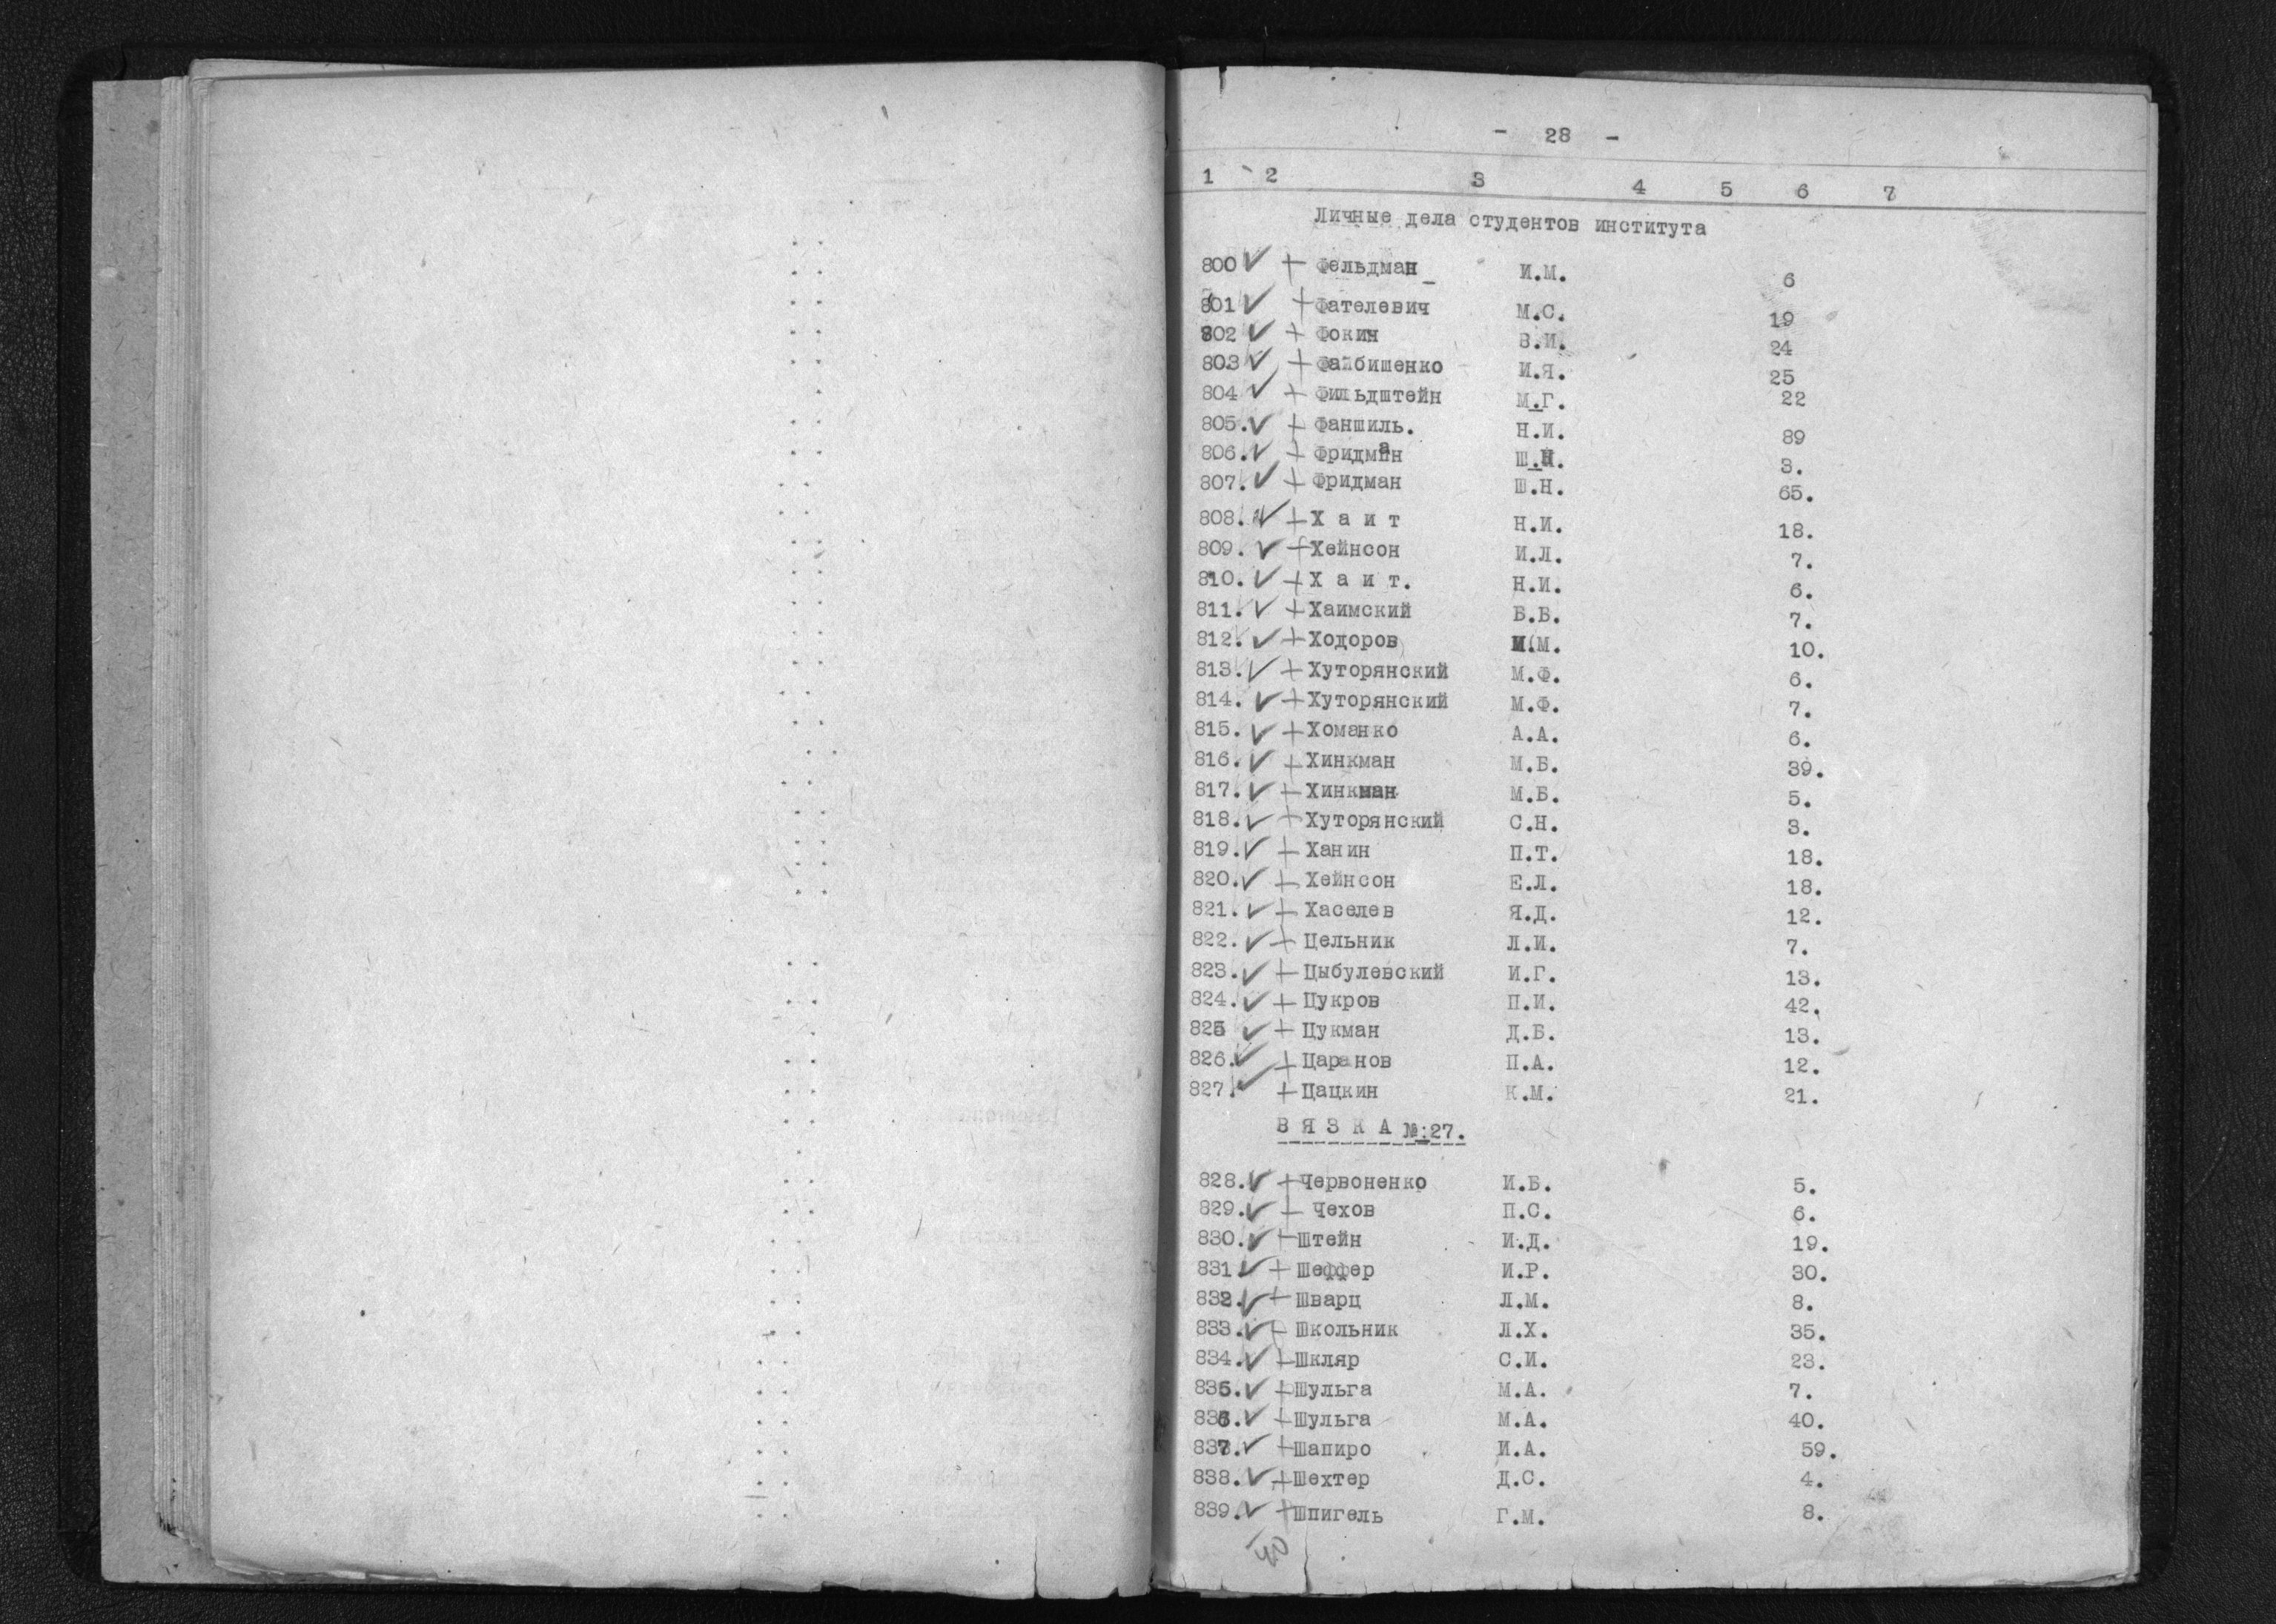 - 28 -
1 2 3 4 5 6 7
Личные дела студентов института
800 ✓ + Фельдман И.М. 6
801 ✓ + Фателевич М.С. 19
802 ✓ + Фокин В.И. 24
803 ✓ + Файбишенко И.Я. 25
804 ✓ + Фильдштейн М.Г. 22
805. ✓ + Фаншиль. Н.И. 89
806. ✓ + Фридман Ш.Н. 3.
807. ✓ + Фридман Ш.Н. 65.
808. ✓ + Х а и т Н.И. 18.
809. ✓ + Хейнсон И.Л. 7.
810. ✓ + Х а и т. Н.И. 6.
811. ✓ + Хаимский Б.Б. 7.
812. ✓ + Ходоров И.М. 10.
813. ✓ + Хуторянский М.Ф. 6.
814. ✓ + Хуторянский М.Ф. 7.
815. ✓ + Хоманко А.А. 6.
816. ✓ + Хинкман М.Б. 39.
817. ✓ + Хинкман М.Б. 5.
818. ✓ + Хуторянский С.Н. 3.
819. ✓ + Ханин П.Т. 18.
820. ✓ + Хейнсон Е.Л. 18.
821. ✓ + Хаселев Я.Д. 12.
822. ✓ + Цельник Л.И. 7.
823. ✓ + Цыбулевский И.Г. 13.
824. ✓ + Цукров П.И. 42.
825 ✓ + Цукман Д.Б. 13.
826. ✓ + Царанов П.А. 12.
827. ✓ + Цацкин К.М. 21.
В Я З К А №:27.
828. ✓ + Червоненко И.Б. 5.
829. ✓ + Чехов П.С. 6.
830. ✓ + Штейн И.Д. 19.
831 ✓ + Шеффер И.Р. 30.
832. ✓ + Шварц Л.М. 8.
833. ✓ + Школьник Л.Х. 35.
834. ✓ + Шкляр С.И. 23.
835. ✓ + Шульга М.А. 7.
836. ✓ + Шульга М.А. 40.
837. ✓ + Шапиро И.А. 59.
838. ✓ + Шехтер Д.С. 4.
839. ✓ + Шпигель Г.М. 8.
40